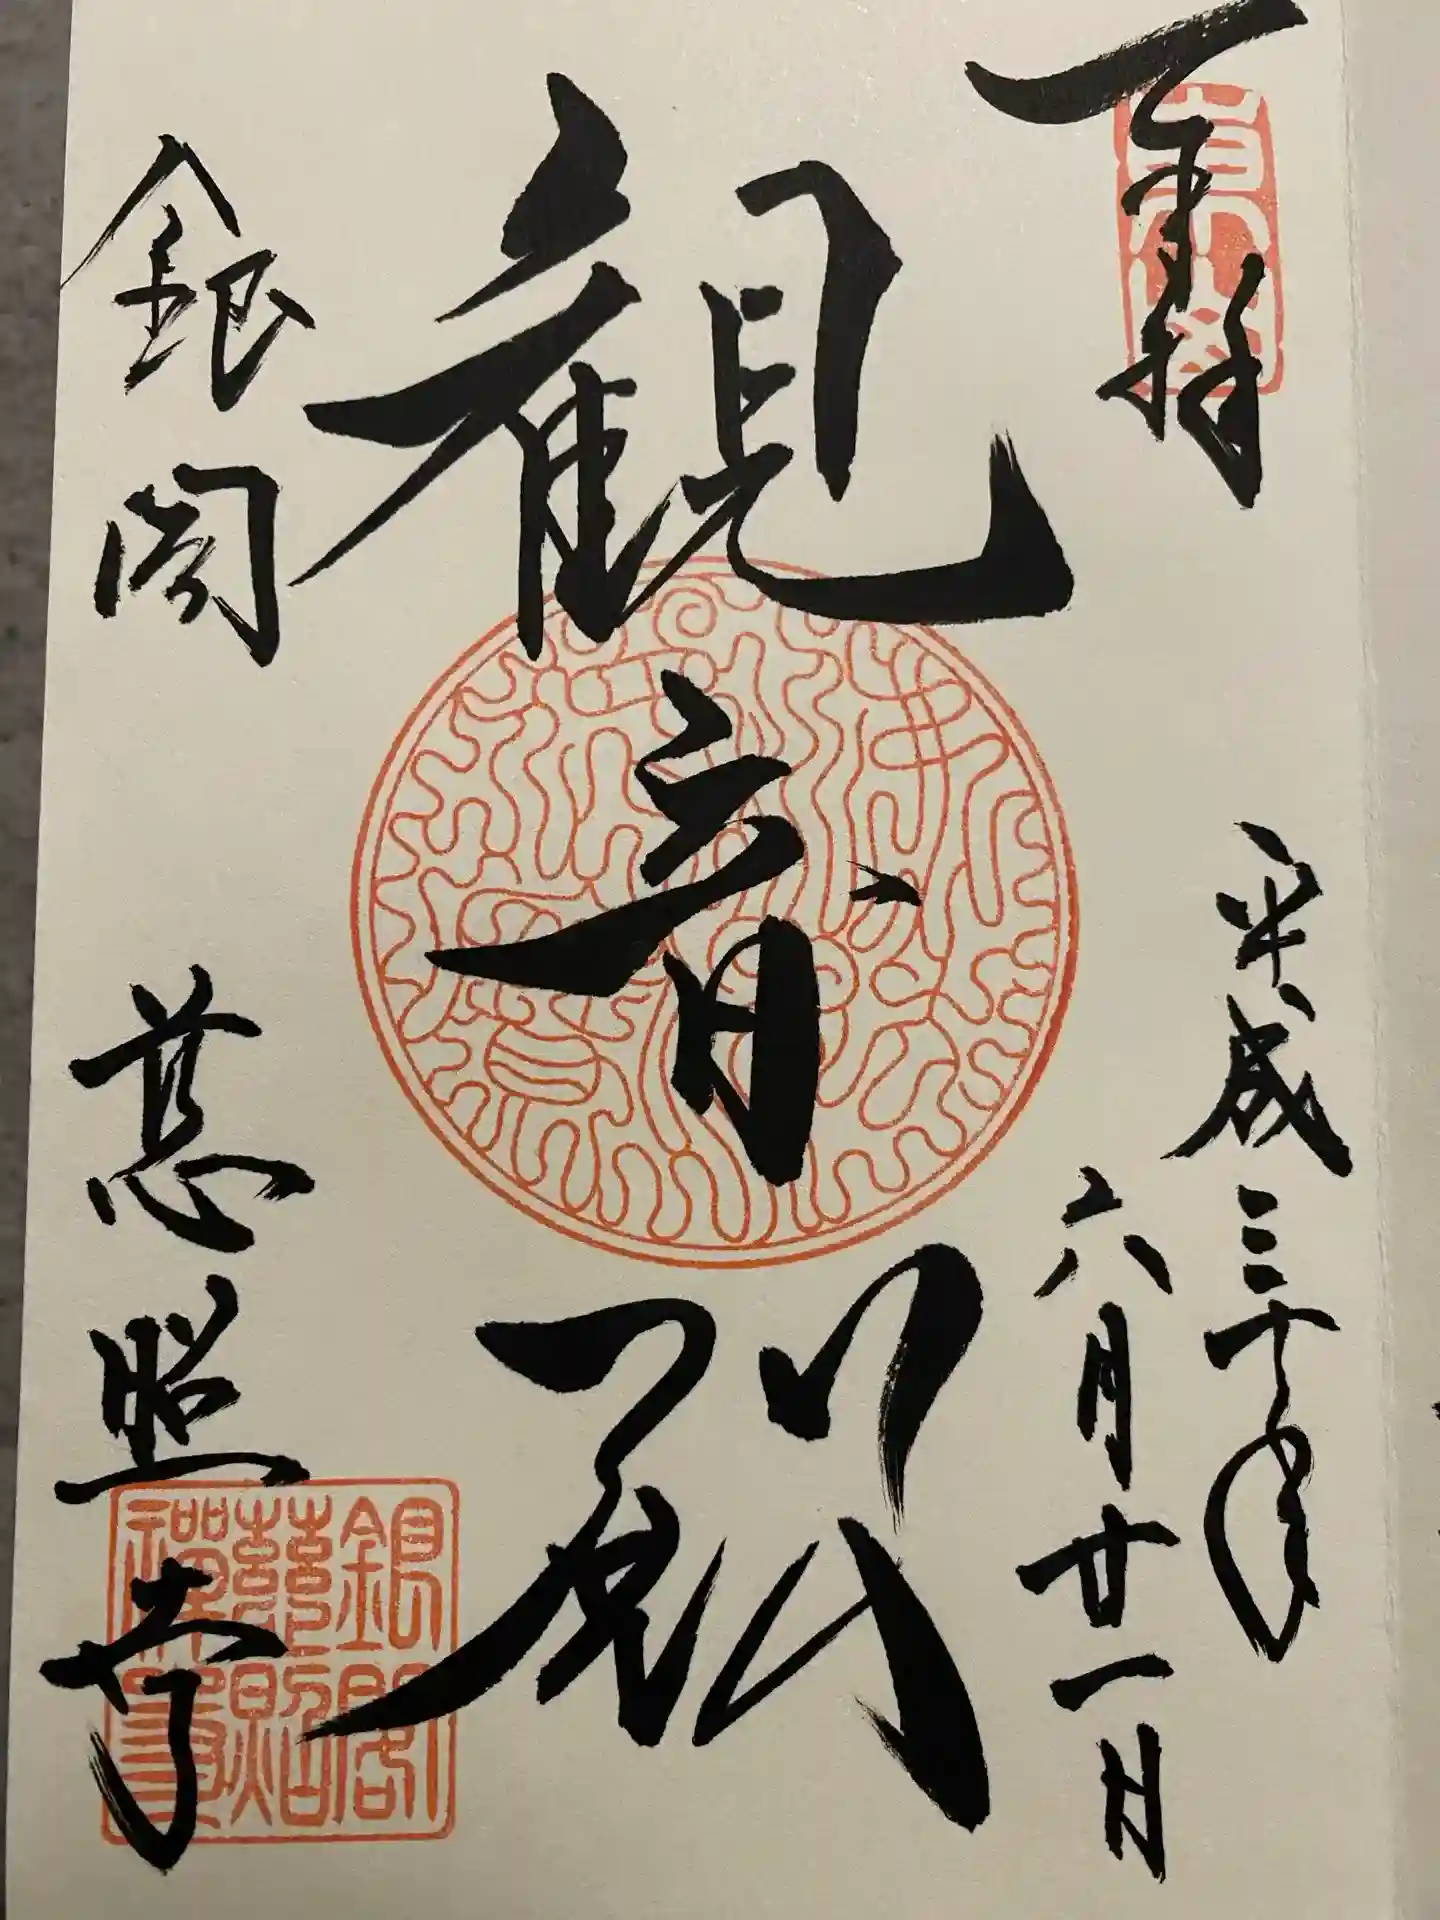 奉拝
平成三十年
六月廿一日
観音殿
銀閣 慈照寺
銀閣
慈照
禅寺